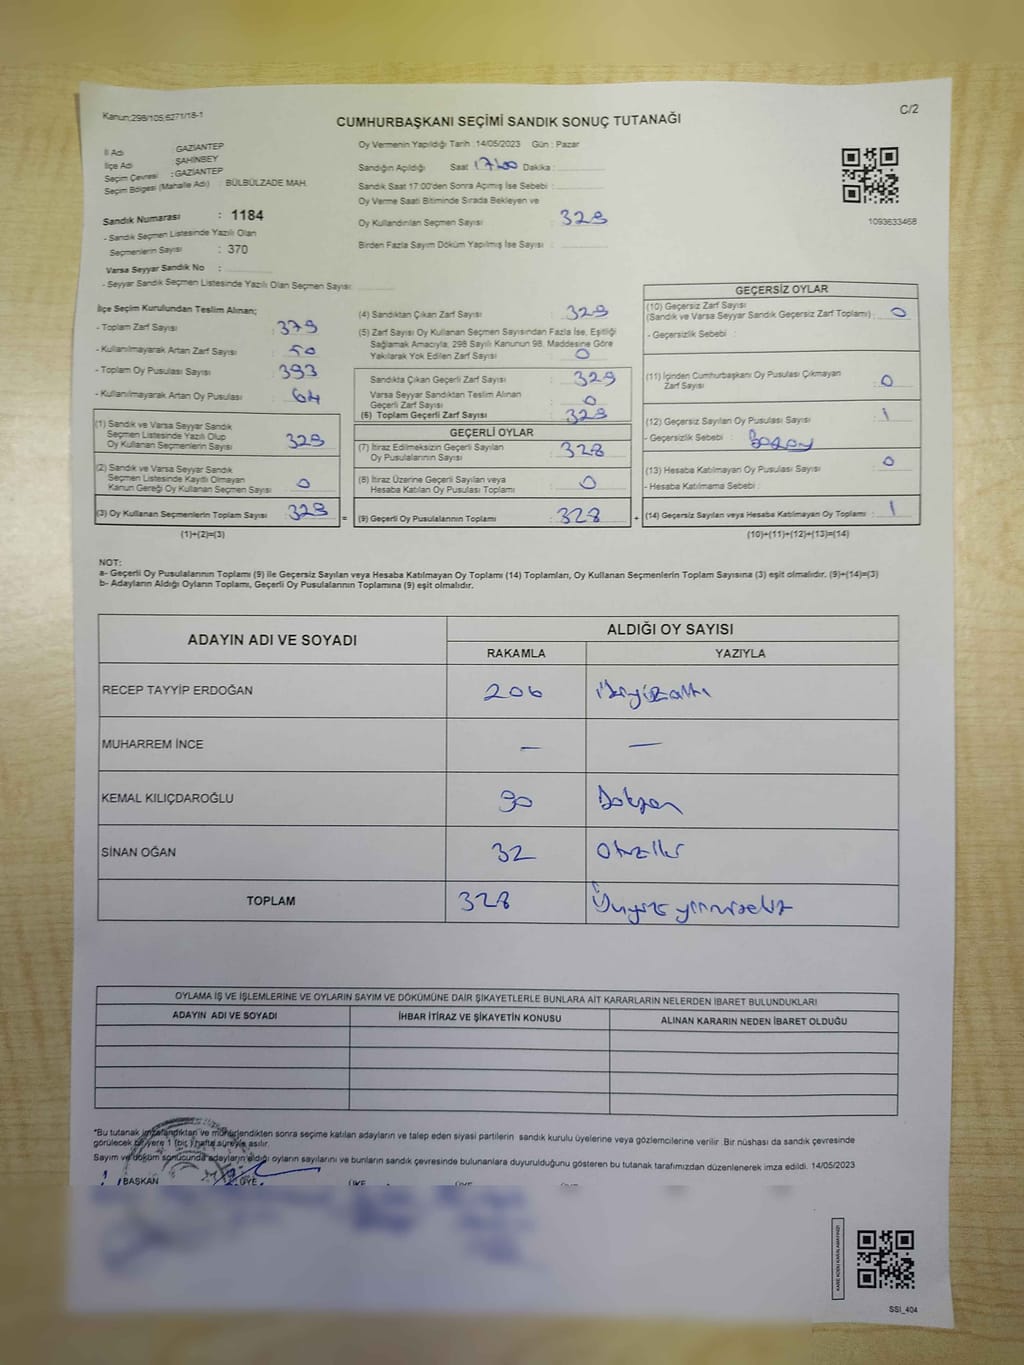 Kanun:298/105;6271/18-1
C/2
CUMHURBAŞKANI SEÇİMİ SANDIK SONUÇ TUTANAĞI
İl Adı : GAZİANTEP
İlçe Adı : ŞAHİNBEY
Seçim Çevresi : GAZİANTEP
Seçim Bölgesi (Mahalle Adı) : BÜLBÜLZADE MAH.
Sandık Numarası : 1184
- Sandık Seçmen Listesinde Yazılı Olan
Seçmenlerin Sayısı : 370
Varsa Seyyar Sandık No :
- Seyyar Sandık Seçmen Listesinde Yazılı Olan Seçmen Sayısı:
Oy Vermenin Yapıldığı Tarih :14/05/2023 Gün : Pazar
Sandığın Açıldığı Saat 17:00 Dakika :
Sandık Saat 17:00'den Sonra Açımış İse Sebebi :
Oy Verme Saati Bitiminde Sırada Bekleyen ve
Oy Kullandırılan Seçmen Sayısı : 329
Birden Fazla Sayım Döküm Yapılmış İse Sayısı :
1093633468
İlçe Seçim Kurulundan Teslim Alınan;
- Toplam Zarf Sayısı : 379
- Kullanılmayarak Artan Zarf Sayısı : 50
- Toplam Oy Pusulası Sayısı : 393
- Kullanılmayarak Artan Oy Pusulası : 64
(1) Sandık ve Varsa Seyyar Sandık
Seçmen Listesinde Yazılı Olup
Oy Kullanan Seçmenlerin Sayısı : 329
(2) Sandık ve Varsa Seyyar Sandık
Seçmen Listesinde Kayıtlı Olmayan
Kanun Gereği Oy Kullanan Seçmen Sayısı : 0
(3) Oy Kullanan Seçmenlerin Toplam Sayısı : 329
(1)+(2)=(3)
=
(4) Sandıktan Çıkan Zarf Sayısı : 329
(5) Zarf Sayısı Oy Kullanan Seçmen Sayısından Fazla İse, Eşitliği
Sağlamak Amacıyla; 298 Sayılı Kanunun 98. Maddesine Göre
Yakılarak Yok Edilen Zarf Sayısı : 0
Sandıkta Çıkan Geçerli Zarf Sayısı : 329
Varsa Seyyar Sandıktan Teslim Alınan
Geçerli Zarf Sayısı : 0
(6) Toplam Geçerli Zarf Sayısı : 329
GEÇERLİ OYLAR
(7) İtiraz Edilmeksizin Geçerli Sayılan
Oy Pusulalarının Sayısı : 328
(8) İtiraz Üzerine Geçerli Sayılan veya
Hesaba Katılan Oy Pusulası Toplamı : 0
(9) Geçerli Oy Pusulalarının Toplamı : 328
+
GEÇERSİZ OYLAR
(10) Geçersiz Zarf Sayısı
(Sandık ve Varsa Seyyar Sandık Geçersiz Zarf Toplamı) : 0
- Geçersizlik Sebebi :
(11) İçinden Cumhurbaşkanı Oy Pusulası Çıkmayan
Zarf Sayısı : 0
(12) Geçersiz Sayılan Oy Pusulası Sayısı : 1
- Geçersizlik Sebebi :
(13) Hesaba Katılmayan Oy Pusulası Sayısı : 0
- Hesaba Katılmama Sebebi :
(14) Geçersiz Sayılan veya Hesaba Katılmayan Oy Toplamı : 1
(10)+(11)+(12)+(13)=(14)
NOT:
a- Geçerli Oy Pusulalarının Toplamı (9) ile Geçersiz Sayılan veya Hesaba Katılmayan Oy Toplamı (14) Toplamları, Oy Kullanan Seçmenlerin Toplam Sayısına (3) eşit olmalıdır. (9)+(14)=(3)
b- Adayların Aldığı Oyların Toplamı, Geçerli Oy Pusulalarının Toplamına (9) eşit olmalıdır.
ADAYIN ADI VE SOYADI
ALDIĞI OY SAYISI
RAKAMLA YAZIYLA
RECEP TAYYİP ERDOĞAN 206 İkiyüzaltı
MUHARREM İNCE — —
KEMAL KILIÇDAROĞLU 90 Doksan
SİNAN OĞAN 32 Otuziki
TOPLAM 328 Üçyüz yirmisekiz
OYLAMA İŞ VE İŞLEMLERİNE VE OYLARIN SAYIM VE DÖKÜMÜNE DAİR ŞİKAYETLERLE BUNLARA AİT KARARLARIN NELERDEN İBARET BULUNDUKLARI
ADAYIN ADI VE SOYADI İHBAR İTİRAZ VE ŞİKAYETİN KONUSU ALINAN KARARIN NEDEN İBARET OLDUĞU
*Bu tutanak imzalandıktan ve mühürlendikten sonra seçime katılan adayların ve talep eden siyasi partilerin sandık kurulu üyelerine veya gözlemcilerine verilir. Bir nüshası da sandık çevresinde
görülecek bir yere 1 (bir) hafta süreyle asılır.
Sayım ve döküm sonucunda adayların aldığı oyların sayılarını ve bunların sandık çevresinde bulunanlara duyurulduğunu gösteren bu tutanak tarafımızdan düzenlenerek imza edildi. 14/05/2023
BAŞKAN ÜYE ÜYE ÜYE
SSI_404